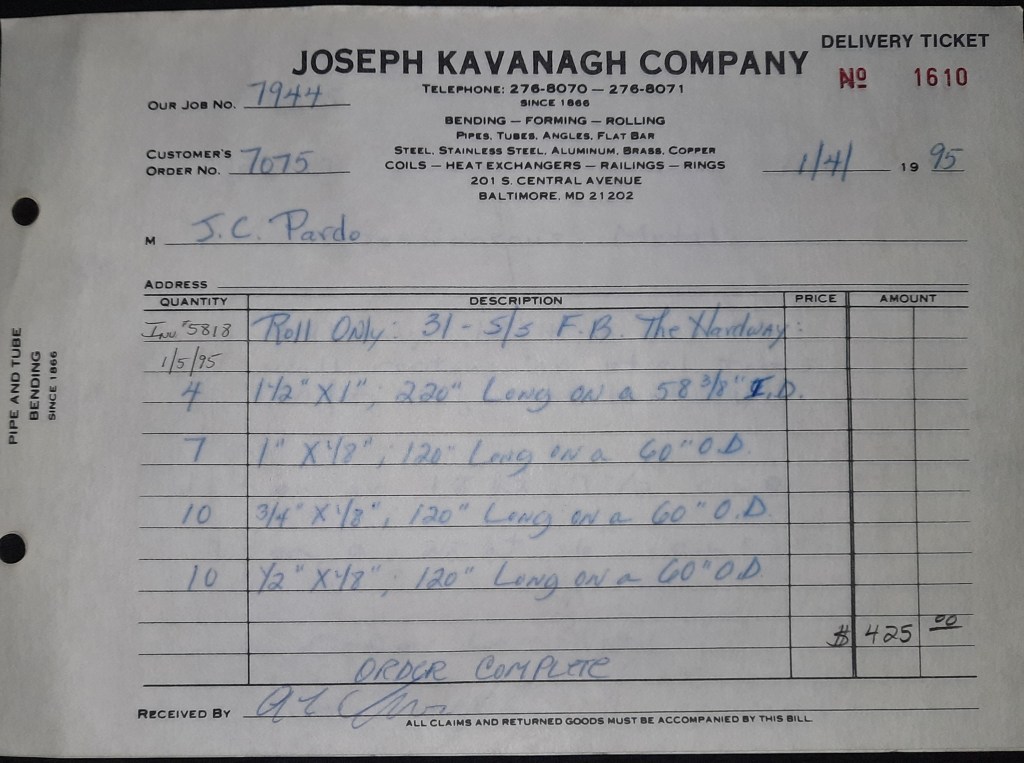 DELIVERY TICKET
JOSEPH KAVANAGH COMPANY
No 1610
OUR JOB NO. 7944
TELEPHONE: 276-8070 — 276-8071
SINCE 1866
BENDING — FORMING — ROLLING
PIPES, TUBES, ANGLES, FLAT BAR
STEEL, STAINLESS STEEL, ALUMINUM, BRASS, COPPER
COILS — HEAT EXCHANGERS — RAILINGS — RINGS
201 S. CENTRAL AVENUE
BALTIMORE, MD 21202
CUSTOMER'S
ORDER NO. 7075
1/4/ 19 95
M J.C. Pardo
ADDRESS
QUANTITY DESCRIPTION PRICE AMOUNT
Inv #5818 Roll Only: 31 - S/S F.B. The Hardway:
1/5/95
4 1 1/2" X 1", 220" Long on a 58 3/8" I.D.
7 1" X 1/8", 120" Long on a 60" O.D.
10 3/4" X 1/8", 120" Long on a 60" O.D.
10 1/2" X 1/8", 120" Long on a 60" O.D.
$ 425 00
ORDER COMPLETE
RECEIVED BY
ALL CLAIMS AND RETURNED GOODS MUST BE ACCOMPANIED BY THIS BILL
PIPE AND TUBE
BENDING
SINCE 1866